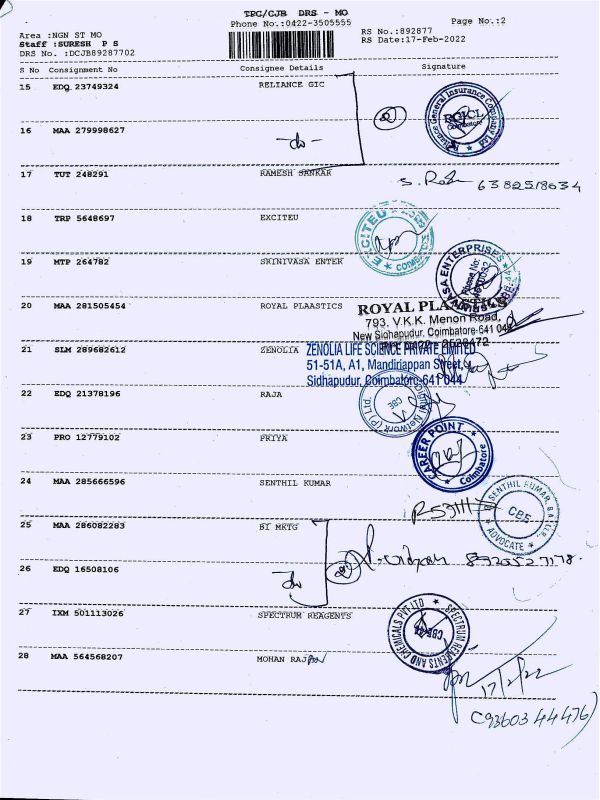 TPC/CJB DRS - MO
Phone No.:0422-3505555
Page No.:2
Area :NGN ST MO
RS No.:892877
Staff :SURESH P S
RS Date:17-Feb-2022
DRS No. :DCJB89287702
S No Consignment No Consignee Details Signature
15 EDQ 23749324 RELIANCE GIC
Reliance General Insurance Company Ltd
RGICL
Coimbatore
16 MAA 279998627
17 TUT 248291 RAMESH SANKAR
6382518634
18 TRP 5648697 EXCITEU
EXCITEU
19 MTP 264782 SRINIVASA ENTER
ENTERPRISES
20 MAA 281505454 ROYAL PLAASTICS
ROYAL PLAASTICS
793, V.K.K. Menon Road,
New Sidhapudur, Coimbatore-641 044
21 SLM 289682612 ZENOLIA
ZENOLIA LIFE SCIENCE PRIVATE LIMITED
51-51A, A1, Mandiriappan Street,
Sidhapudur, Coimbatore-641 044
22 EDQ 21378196 RAJA
Digital Network (P) Ltd.
CBE
23 PRO 12779102 PRIYA
CAREER POINT
Coimbatore
24 MAA 285666596 SENTHIL KUMAR
SENTHIL KUMAR, B.A., L.L.B.,
CBE
ADVOCATE
25 MAA 286082283 BI MKTG
26 EDQ 16508106
27 IXM 501113026 SPECTRUM REAGENTS
SPECTRUM REAGENTS AND CHEMICALS PVT.LTD
28 MAA 564568207 MOHAN RAJ
17/2/22
(93603 44476)